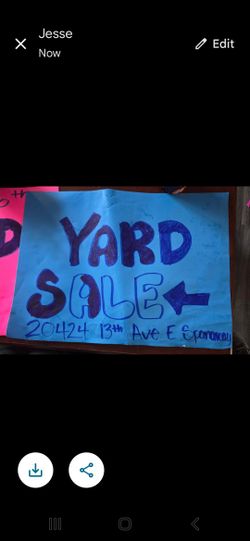 Jesse
Now
Edit
th
D
YARD
SALE
20424 13th Ave E Spanaway